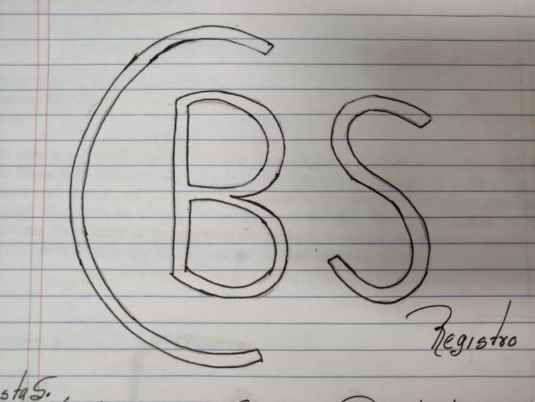 CBS
Registro
staS.